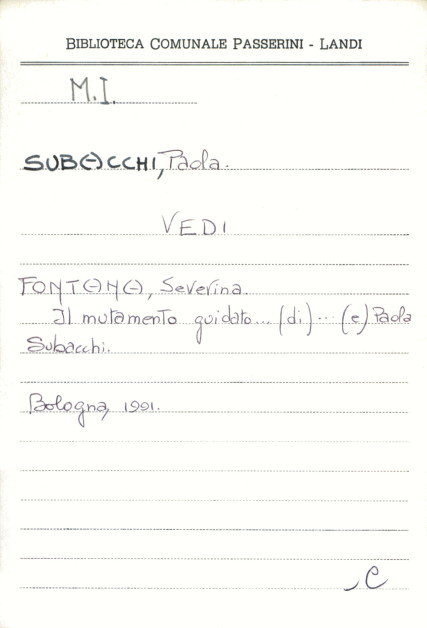 BIBLIOTECA COMUNALE PASSERINI - LANDI
M.I.
SUBACCHI, Paola.
VEDI
FONTANA, Severina.
Il mutamento guidato... (di)... (e) Paola
Subacchi.
Bologna, 1991.
C